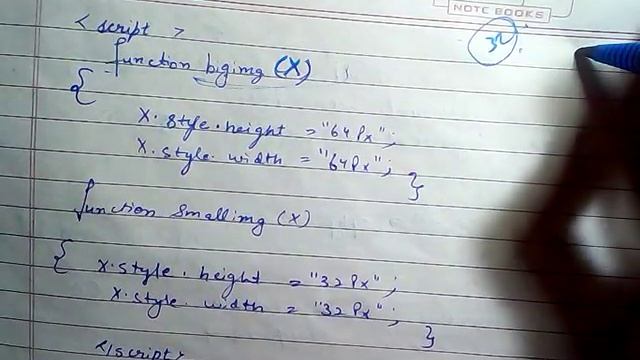 NOTE BOOKS
< script >
32
function bigimg (X)
{
X. style. height = "64 Px";
X. style. width = "64 Px"; }
function Smallimg (X)
{ X. style. height = "32 Px";
X. style. width = "32 Px"; }
</script>